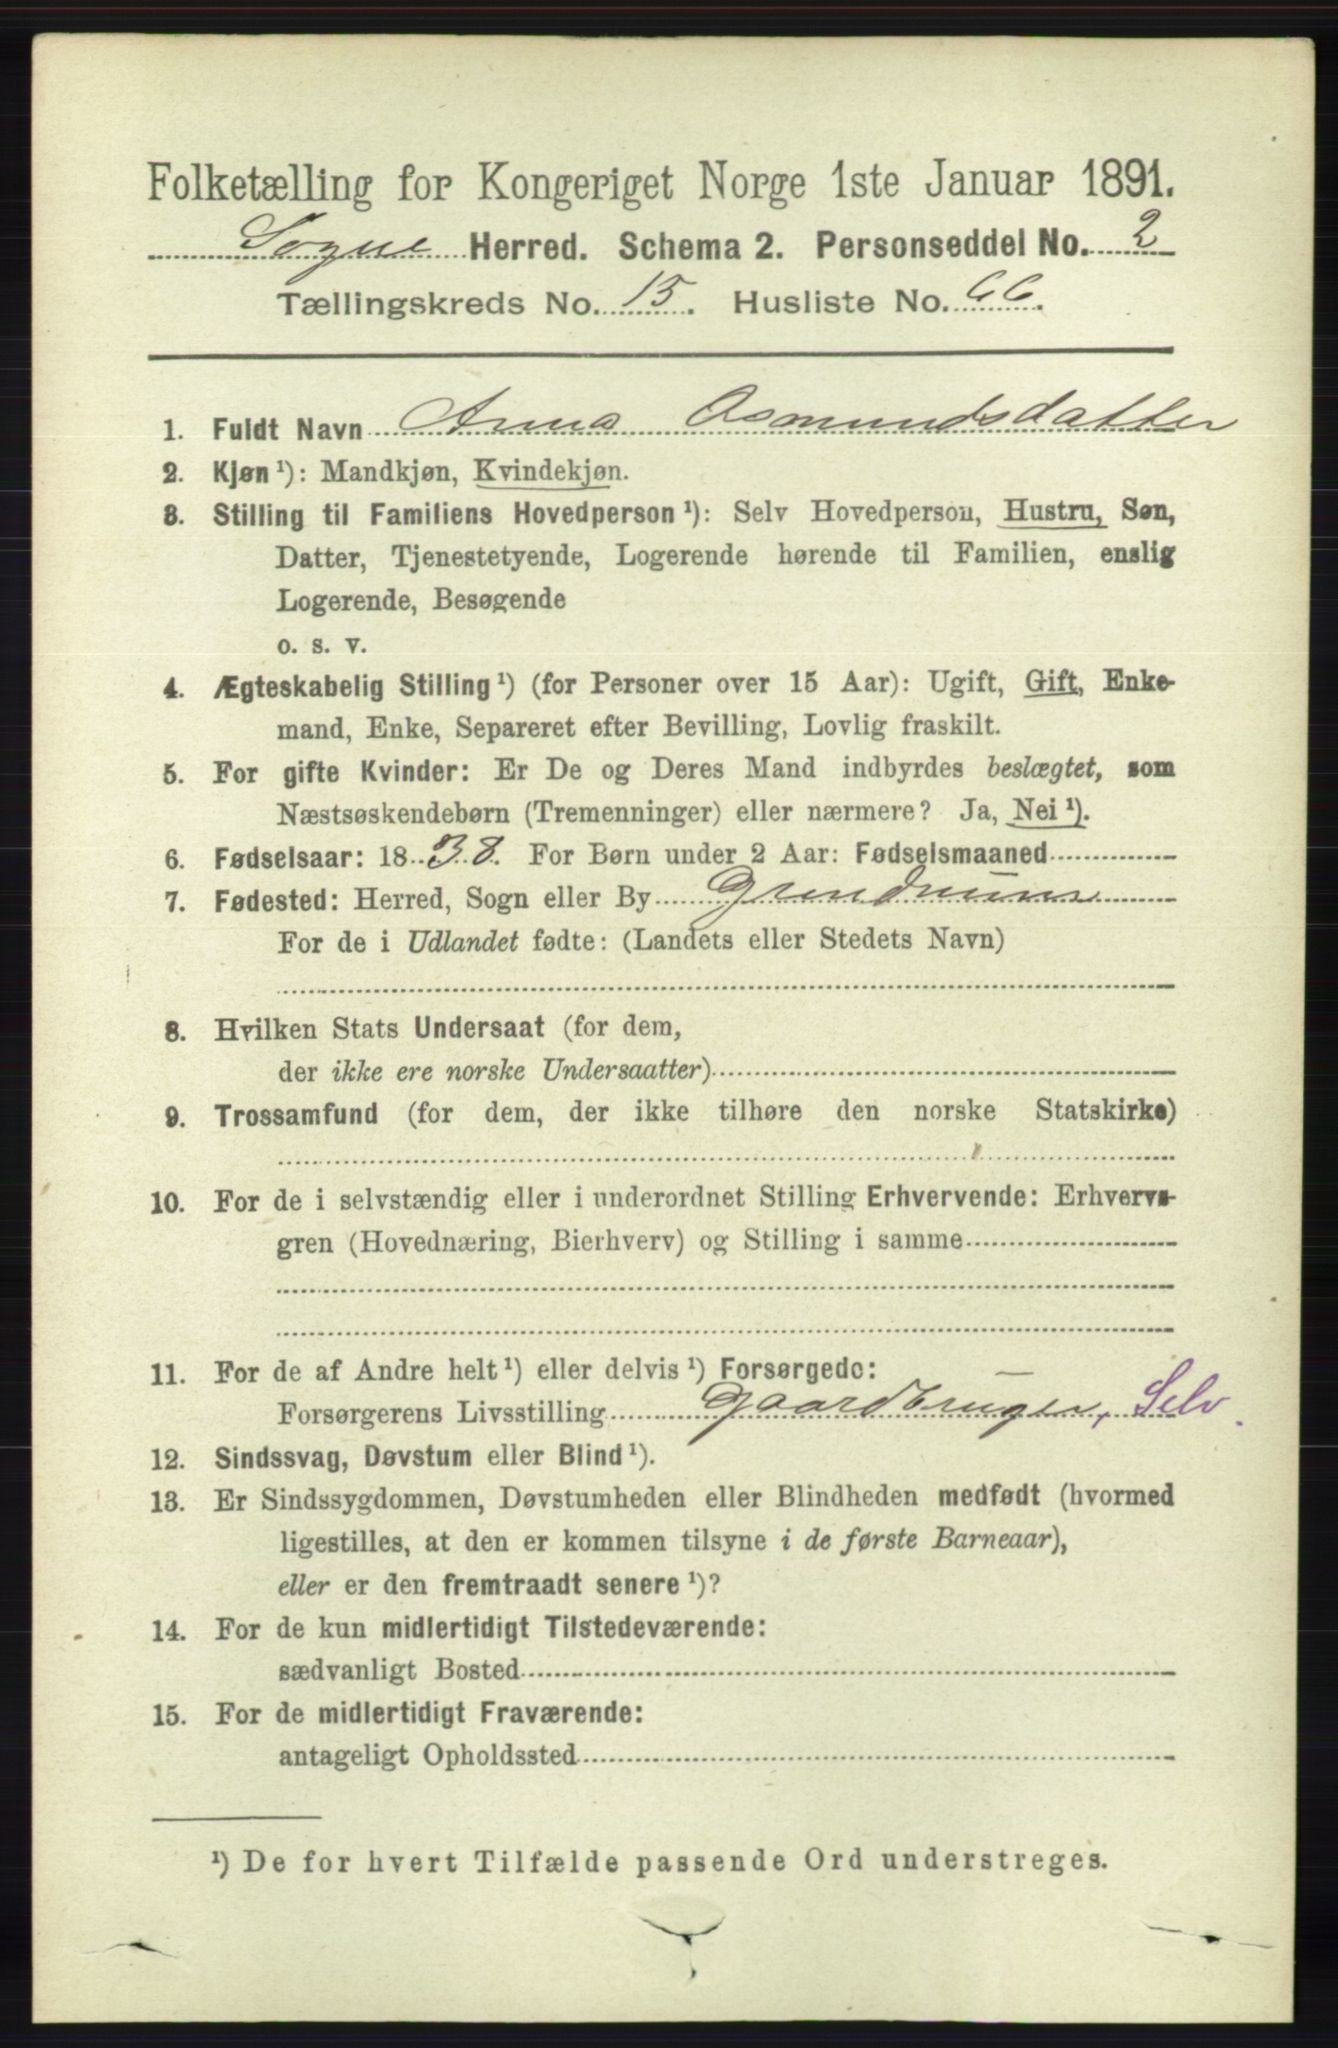 Folketælling for Kongeriget Norge 1ste Januar 1891.
Søgne Herred. Schema 2. Personseddel No. 2
Tællingskreds No. 15. Husliste No. 66.
1. Fuldt Navn Anna Osmundsdatter
2. Kjøn ¹): Mandkjøn, Kvindekjøn.
3. Stilling til Familiens Hovedperson ¹): Selv Hovedperson, Hustru, Søn,
Datter, Tjenestetyende, Logerende hørende til Familien, enslig
Logerende, Besøgende
o. s. v.
4. Ægteskabelig Stilling ¹) (for Personer over 15 Aar): Ugift, Gift, Enke-
mand, Enke, Separeret efter Bevilling, Lovlig fraskilt.
5. For gifte Kvinder: Er De og Deres Mand indbyrdes beslægtet, som
Næstsøskendebørn (Tremenninger) eller nærmere? Ja, Nei ¹).
6. Fødselsaar: 1838. For Børn under 2 Aar: Fødselsmaaned
7. Fødested: Herred, Sogn eller By
For de i Udlandet fødte: (Landets eller Stedets Navn)
8. Hvilken Stats Undersaat (for dem,
der ikke ere norske Undersaatter)
9. Trossamfund (for dem, der ikke tilhøre den norske Statskirke)
10. For de i selvstændig eller i underordnet Stilling Erhvervende: Erhvervs-
gren (Hovednæring, Bierhverv) og Stilling i samme
11. For de af Andre helt ¹) eller delvis ¹) Forsørgede:
Forsørgerens Livsstilling Gaardbruger, Selv.
12. Sindssvag, Døvstum eller Blind ¹).
13. Er Sindssygdommen, Døvstumheden eller Blindheden medfødt (hvormed
ligestilles, at den er kommen tilsyne i de første Barneaar),
eller er den fremtraadt senere ¹)?
14. For de kun midlertidigt Tilstedeværende:
sædvanligt Bosted
15. For de midlertidigt Fraværende:
antageligt Opholdssted
¹) De for hvert Tilfælde passende Ord understreges.